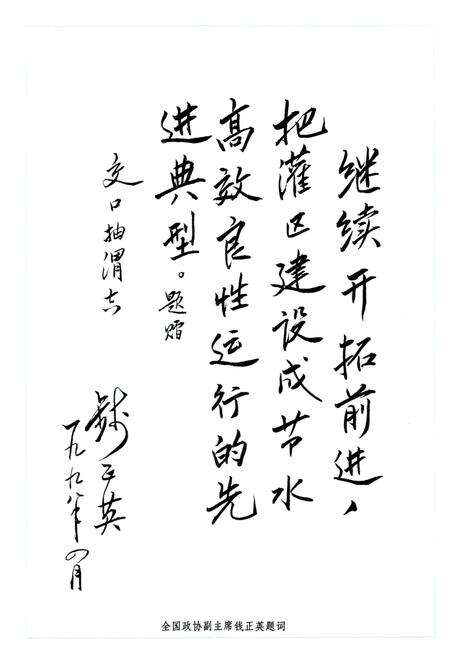 继续开拓前进，
把灌区建设成节水
高效良性运行的先
进典型。题赠
交口抽渭志
钱正英
一九九八年四月
全国政协副主席钱正英题词